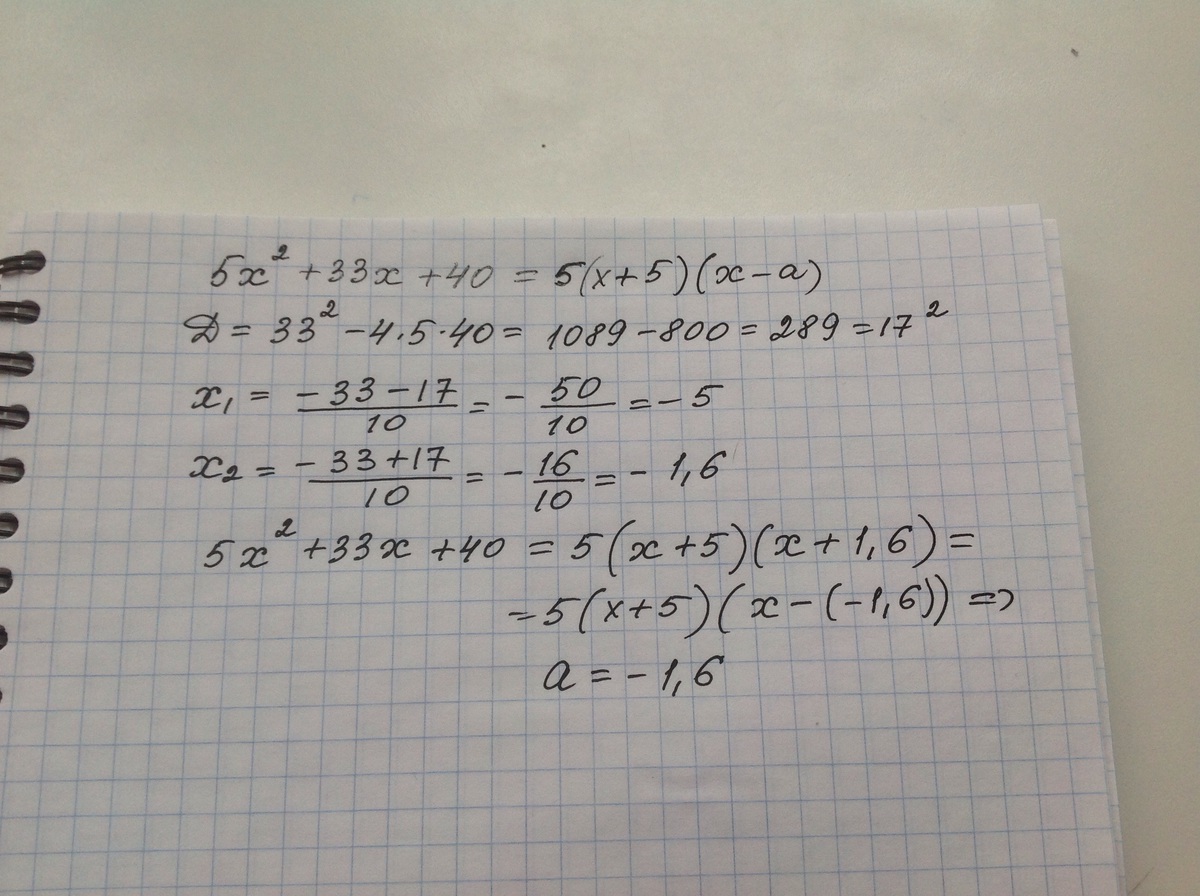 5x² + 33x + 40 = 5(x + 5)(x − a)
Д = 33² − 4·5·40 = 1089 − 800 = 289 = 17²
x₁ = (−33 − 17)/10 = −50/10 = −5
x₂ = (−33 + 17)/10 = −16/10 = −1,6
5x² + 33x + 40 = 5(x + 5)(x + 1,6) =
= 5(x + 5)(x − (−1,6)) =>
a = −1,6